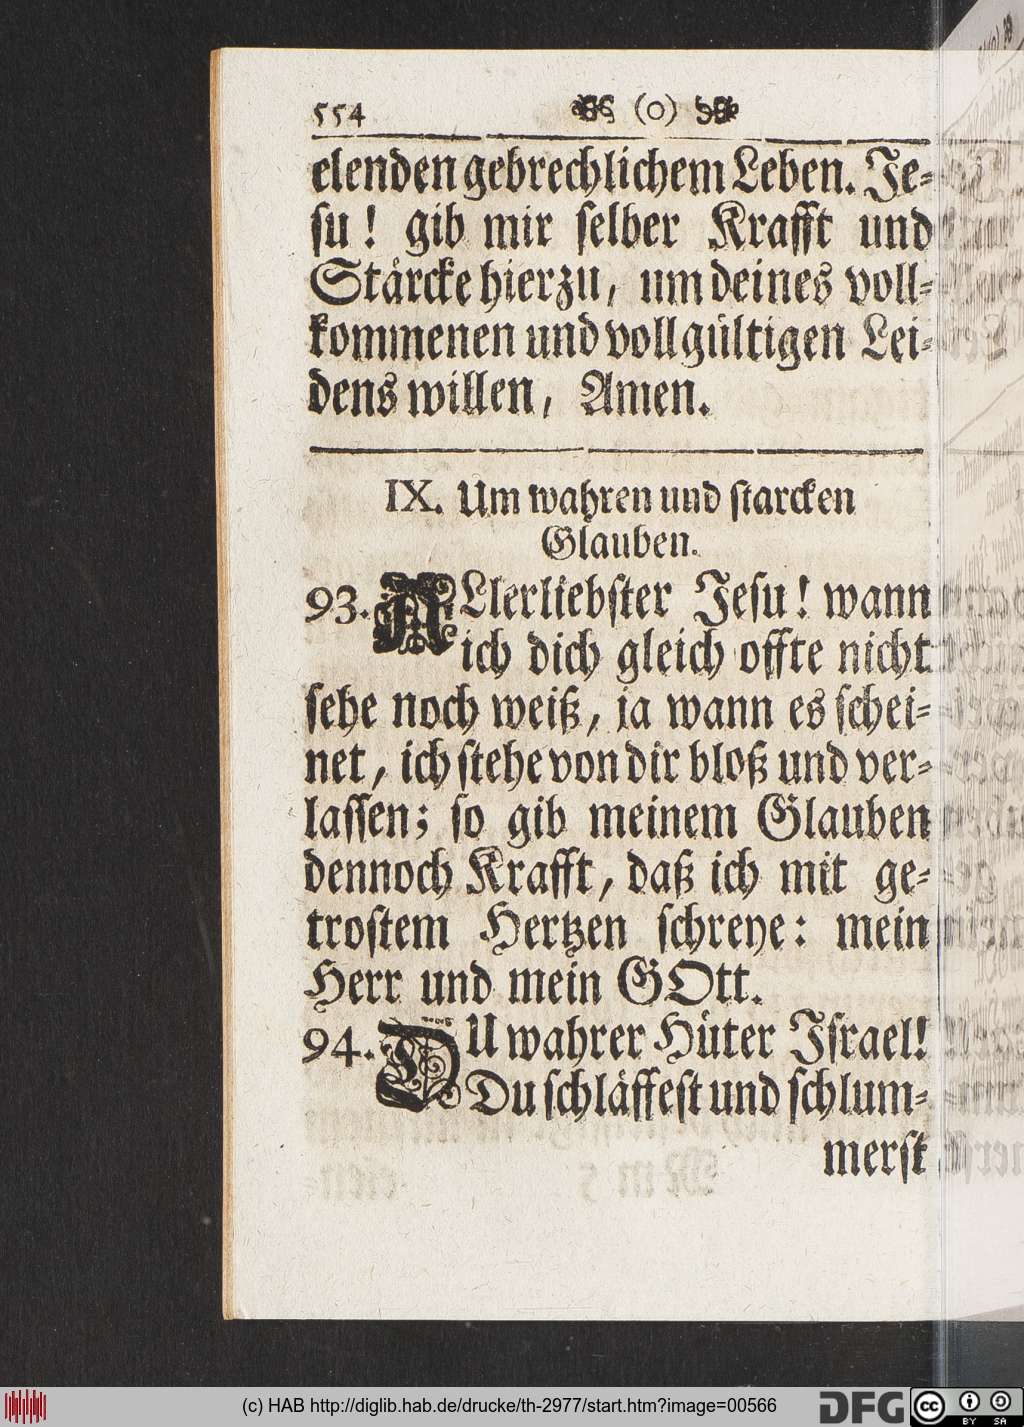 554 (o)
elenden gebrechlichem Leben. Je-
su! gib mir selber Krafft und
Stärcke hierzu, um deines voll-
kommenen und vollgültigen Lei-
dens willen, Amen.
IX. Um wahren und starcken
Glauben.
93. ALlerliebster Jesu! wann
ich dich gleich offte nicht
sehe noch weiß, ja wann es schei-
net, ich stehe von dir bloß und ver-
lassen; so gib meinem Glauben
dennoch Krafft, daß ich mit ge-
trostem Hertzen schreye: mein
Herr und mein GOtt.
94. DU wahrer Hüter Israel!
Du schläffest und schlum-
merst
(c) HAB http://diglib.hab.de/drucke/th-2977/start.htm?image=00566
DFG
cc BY SA